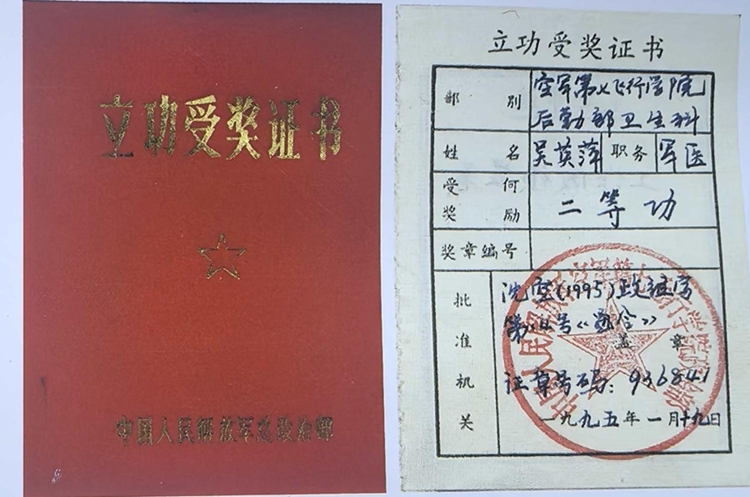 立功受奖证书
中国人民解放军总政治部
立功受奖证书
部别
空军第七飞行学院
后勤部卫生科
姓名 吴英萍 职务 军医
受何奖励 二等功
奖章编号
批准机关
沈空(1995)政
号《命令》
盖章
证章号码：936841
一九九五年一月十九日